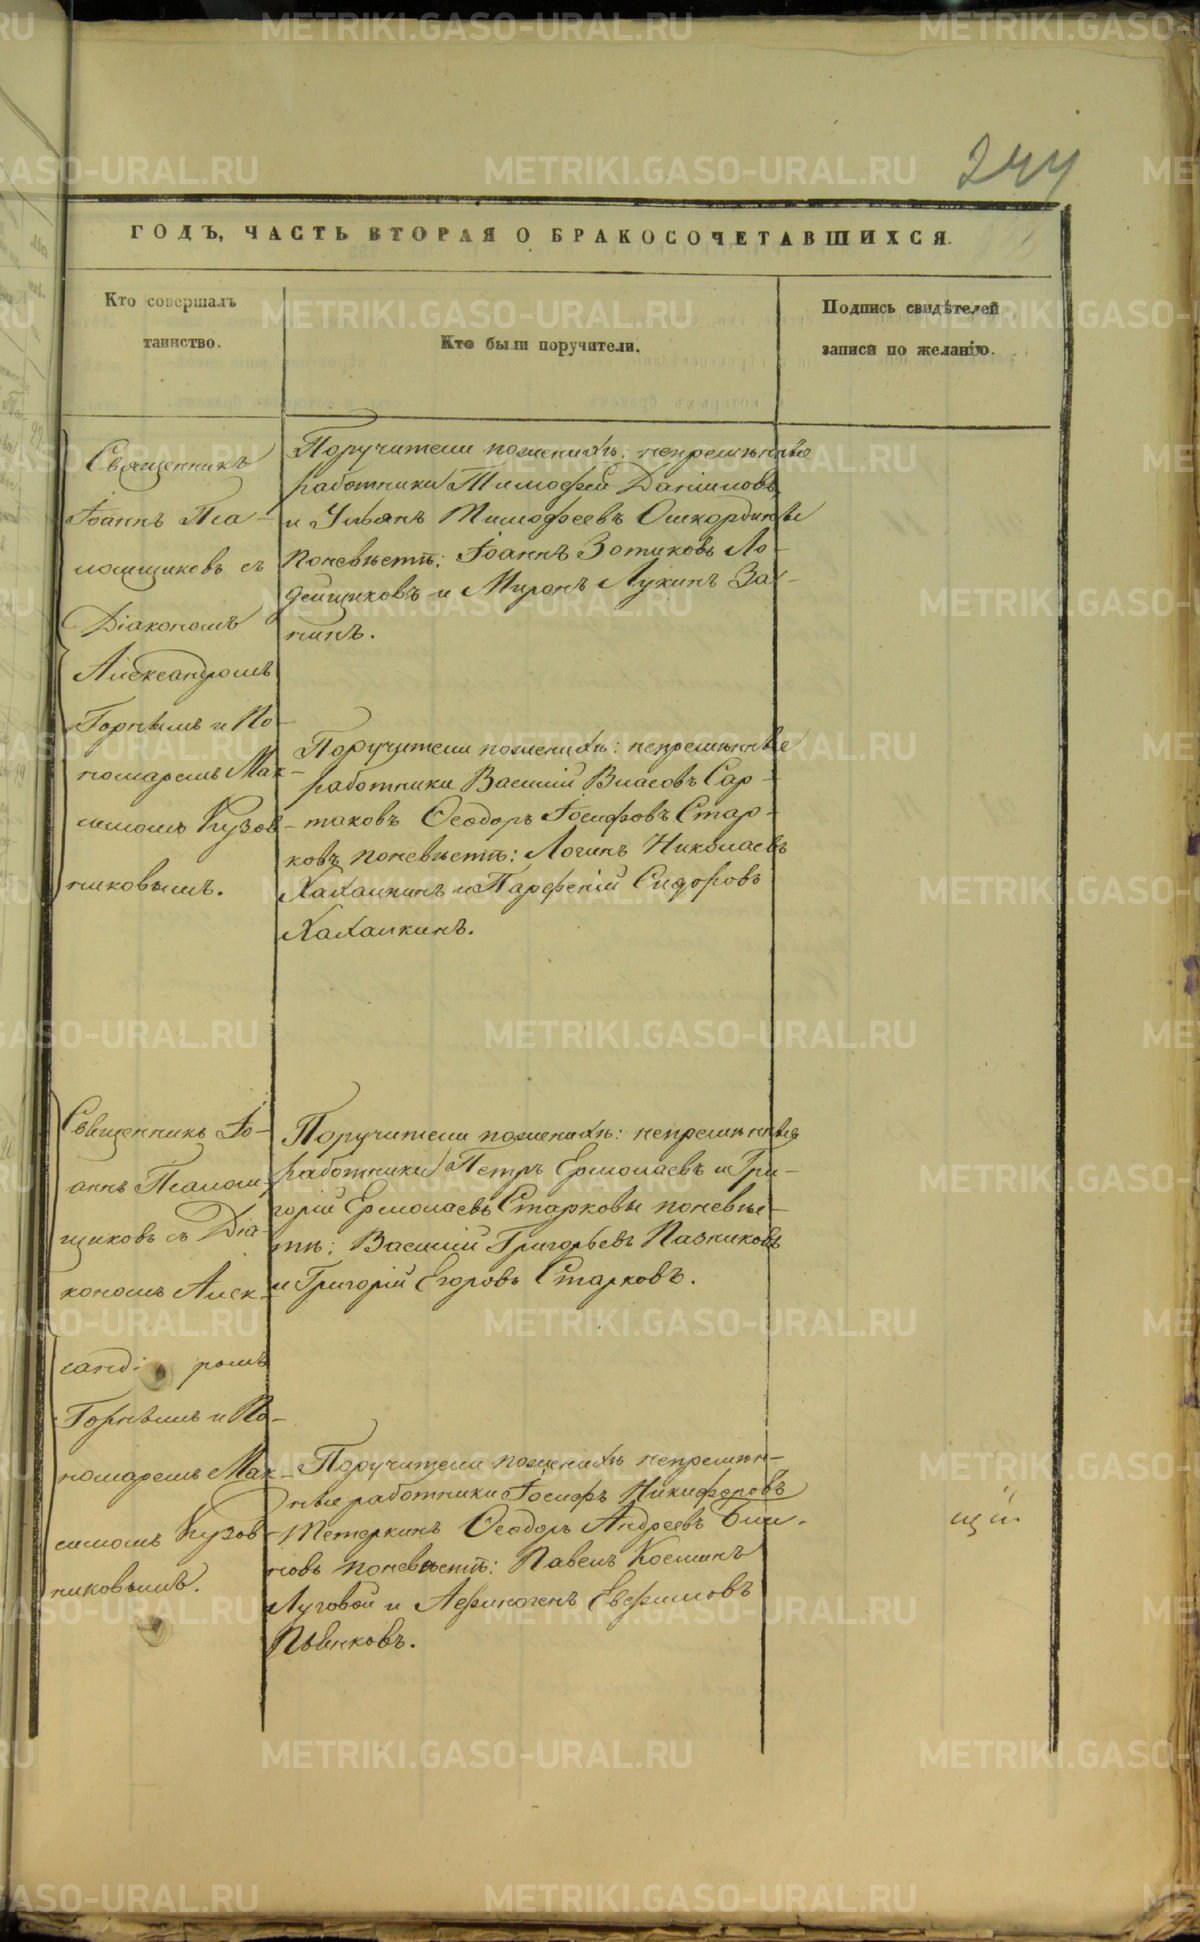 244
ГОДЪ, ЧАСТЬ ВТОРАЯ О БРАКОСОЧЕТАВШИХСЯ.
Кто совершалъ
таинство.
Кто были поручители.
Подпись свидѣтелей
записи по желанію.
Священникъ
Іоаннъ Пса-
ломщиковъ съ
Діакономъ
Александромъ
Горнымъ и По-
номаремъ Мак-
симомъ Кузов-
никовымъ.
Поручители по женихѣ: непремѣнные
работники Тимофей Даніиловъ
и Ульянъ Тимофеевъ Ошкордины
по невѣстѣ: Іоаннъ Зотиковъ Ло-
дейщиковъ и Миронъ Лукинъ За-
нинъ.
Поручители по женихѣ: непремѣнные
работники Василій Власовъ Сар-
таковъ Ѳеодоръ Іосифовъ Стар-
ковъ по невѣстѣ: Логинъ Николаевъ
Халалкинъ и Парфеній Сидоровъ
Халалкинъ.
Священникъ Іо-
аннъ Псалом-
щиковъ съ Діа-
кономъ Алек-
сандромъ
Горнымъ и По-
номаремъ Мак-
симомъ Кузов-
никовымъ.
Поручители по женихѣ: непремѣнныя
работники Петръ Ермолаевъ и Гри-
горій Ермолаевъ Старковы по невѣс-
тѣ: Василій Григорьевъ Павниковъ
и Григорій Егоровъ Старковъ.
Поручители по женихѣ непремѣн-
ные работники Іосифъ Никифоровъ
Тетеркинъ Ѳеодоръ Андреевъ
новъ по невѣстѣ: Павелъ Косминъ
Луговой и Афиногенъ Евфимовъ
Пьянковъ.
щій
METRIKI.GASO-URAL.RU